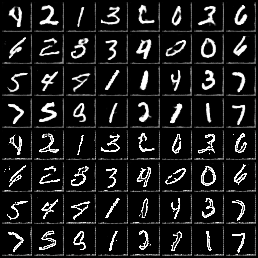 4 2 1 3 0 6
6 2 8 3 4 0 0 6
5 4 9 1 1 4 3 7
7 5 1 2 1 1 7
4 2 1 3 0 6
6 2 8 3 4 0 0 6
5 4 9 1 1 4 3 7
7 5 1 2 1 1 7